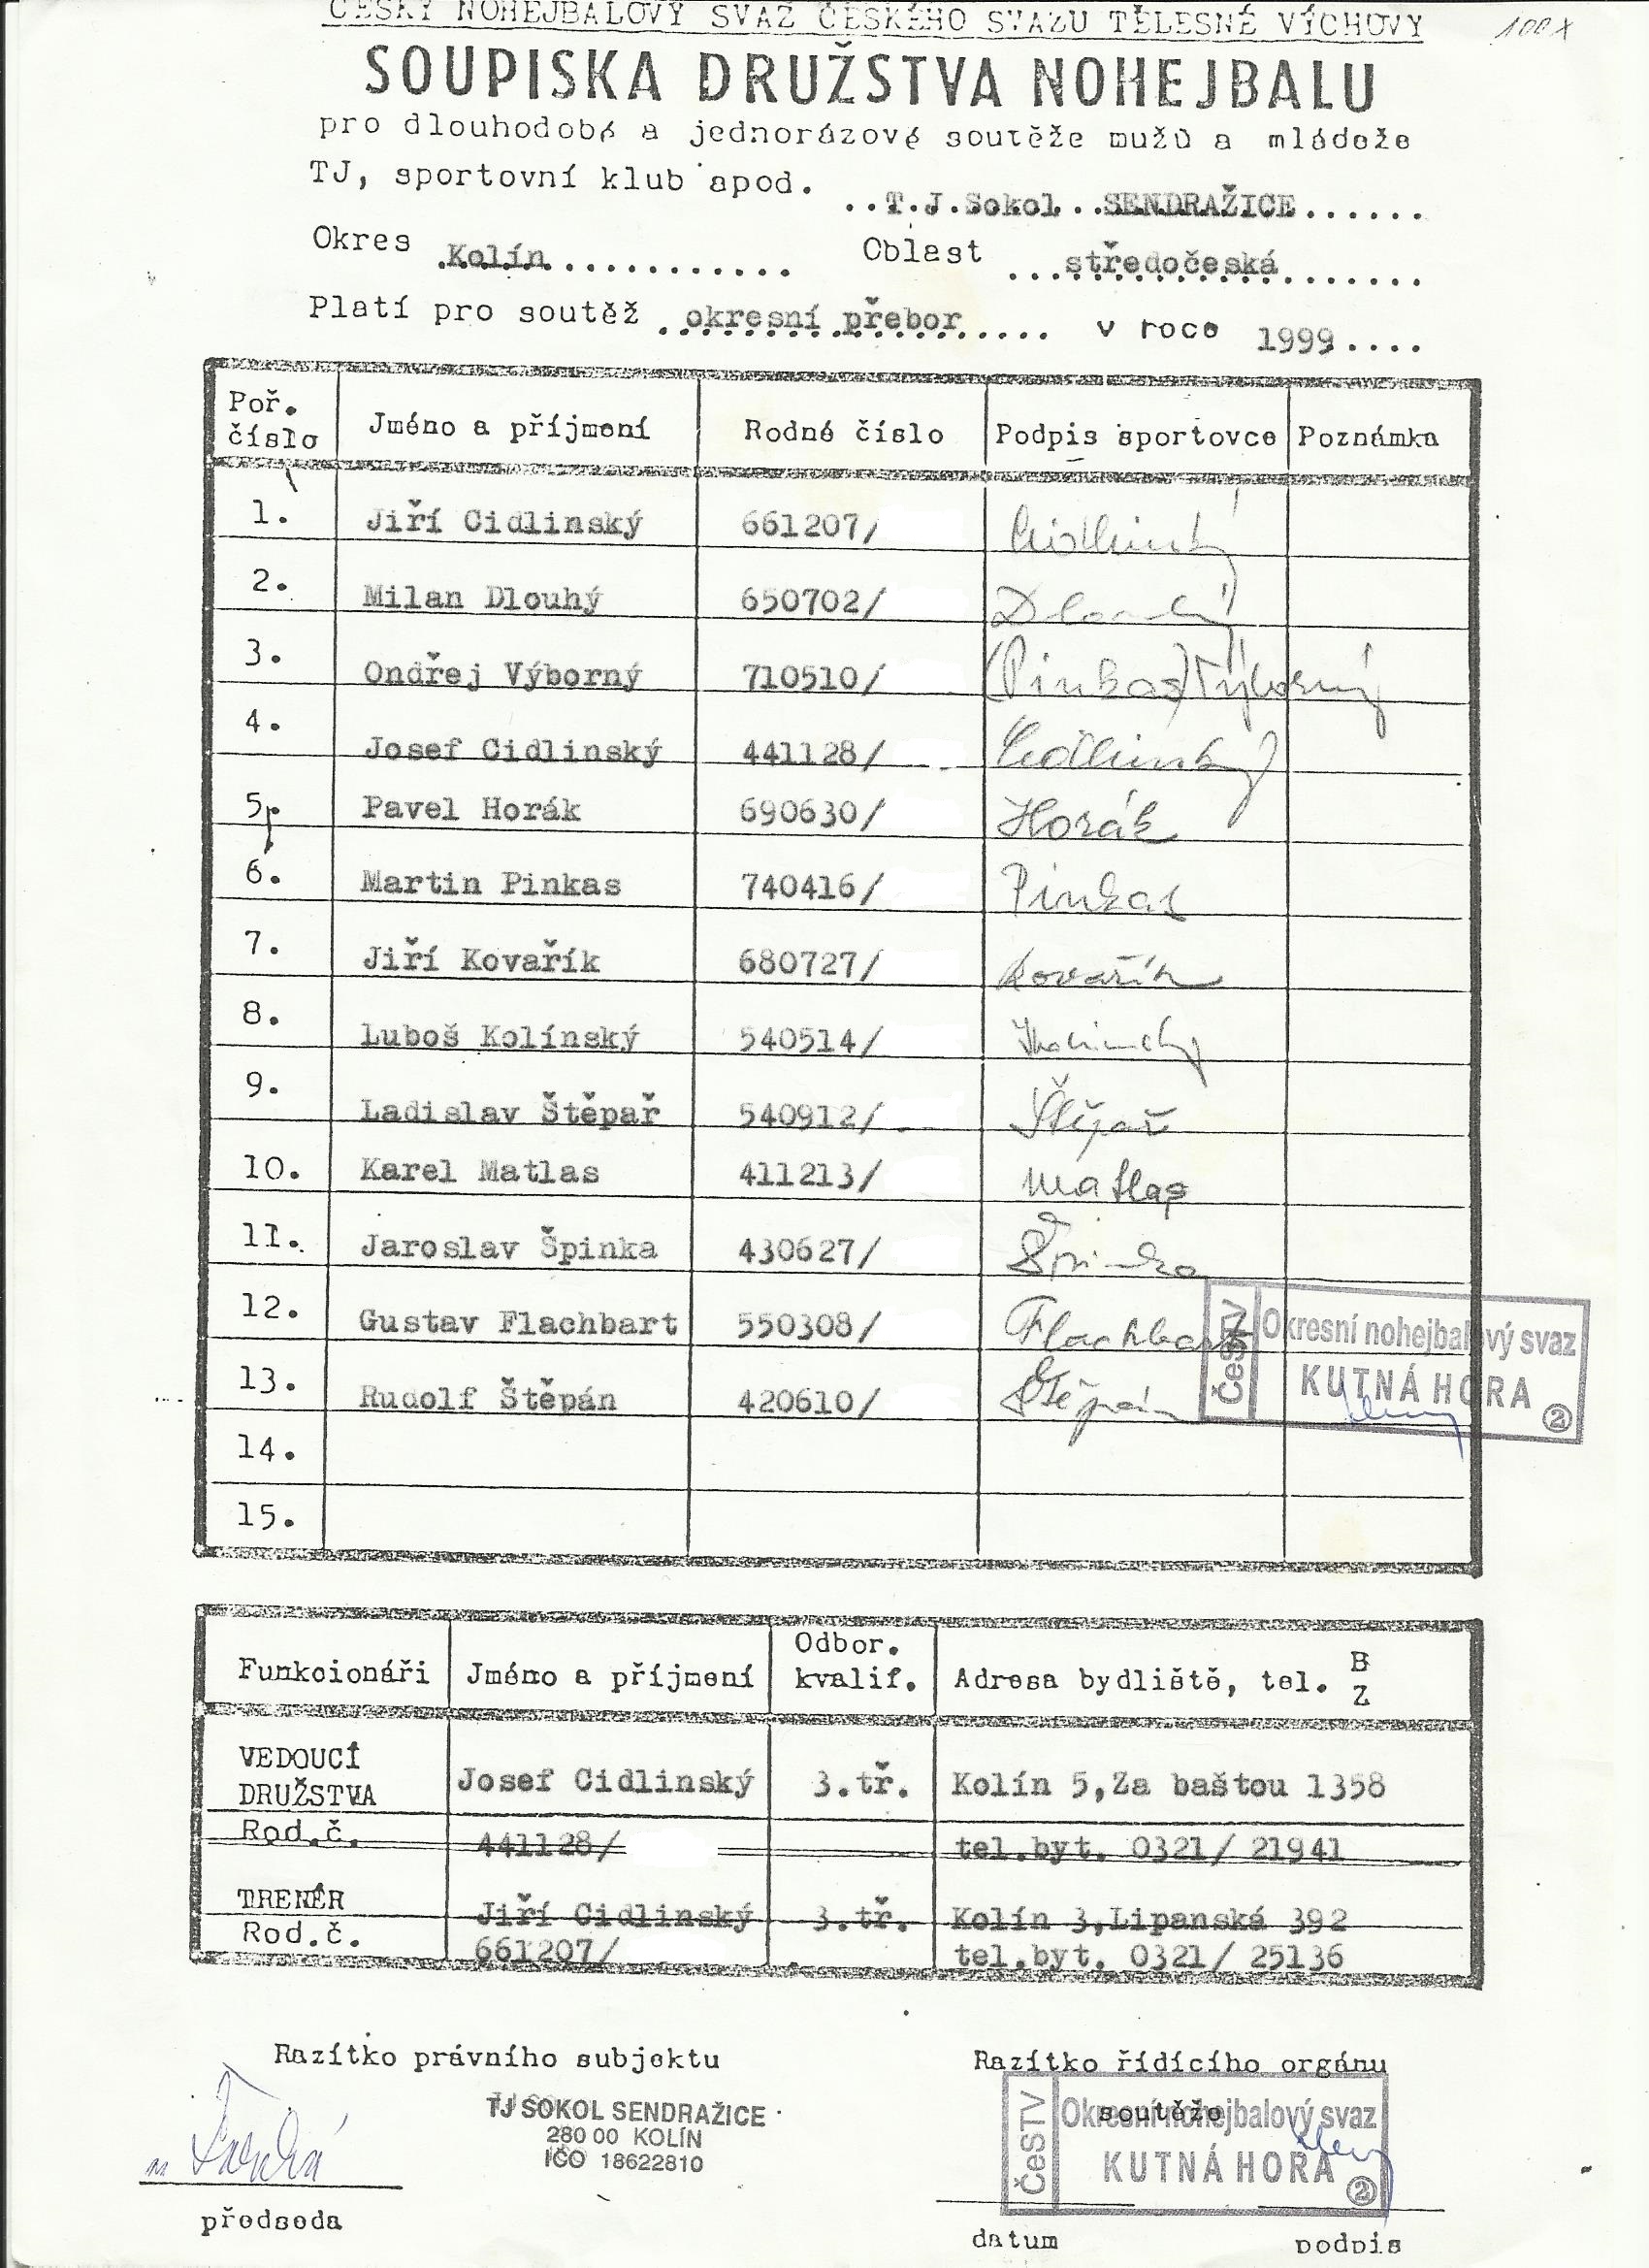 ČESKÝ NOHEJBALOVÝ SVAZ ČESKÉHO SVAZU TĚLESNÉ VÝCHOVY
100x
SOUPISKA DRUŽSTVA NOHEJBALU
pro dlouhodobé a jednorázové soutěže mužů a mládeže
TJ, sportovní klub apod. ..T.J.Sokol..SENDRAŽICE......
Okres Kolín............ Oblast ...středočeská.......
Platí pro soutěž .okresní přebor..... v roce 1999....
Poř. číslo Jméno a příjmení Rodné číslo Podpis sportovce Poznámka
1. Jiří Cidlinský 661207/ Cidlinský
2. Milan Dlouhý 650702/ Dlouhý
3. Ondřej Výborný 710510/ (Pinkas) Výborný
4. Josef Cidlinský 441128/ Cidlinský
5. Pavel Horák 690630/ Horák
6. Martin Pinkas 740416/ Pinkas
7. Jiří Kovařík 680727/ Kovařík
8. Luboš Kolínský 540514/
9. Ladislav Štěpař 540912/ Štěpař
10. Karel Matlas 411213/ Matlas
11. Jaroslav Špinka 430627/ Špinka
12. Gustav Flachbart 550308/ Flachbart
13. Rudolf Štěpán 420610/ Štěpán
ČeSTV Okresní nohejbalový svaz
KUTNÁ HORA
2
14.
15.
Funkcionáři Jméno a příjmení Odbor. kvalif. Adresa bydliště, tel. B Z
VEDOUCÍ DRUŽSTVA Josef Cidlinský 3.tř. Kolín 5,Za baštou 1358
Rod.č. 441128/ tel.byt. 0321/ 21941
TRENÉR Jiří Cidlinský 3.tř. Kolín 3,Lipanská 392
Rod.č. 661207/ tel.byt. 0321/ 25136
Razítko právního subjektu
TJ SOKOL SENDRAŽICE
280 00 KOLÍN
IČO 18622810
předseda
Razítko řídícího orgánu
soutěže
ČeSTV Okresní nohejbalový svaz
KUTNÁ HORA
2
datum podpis